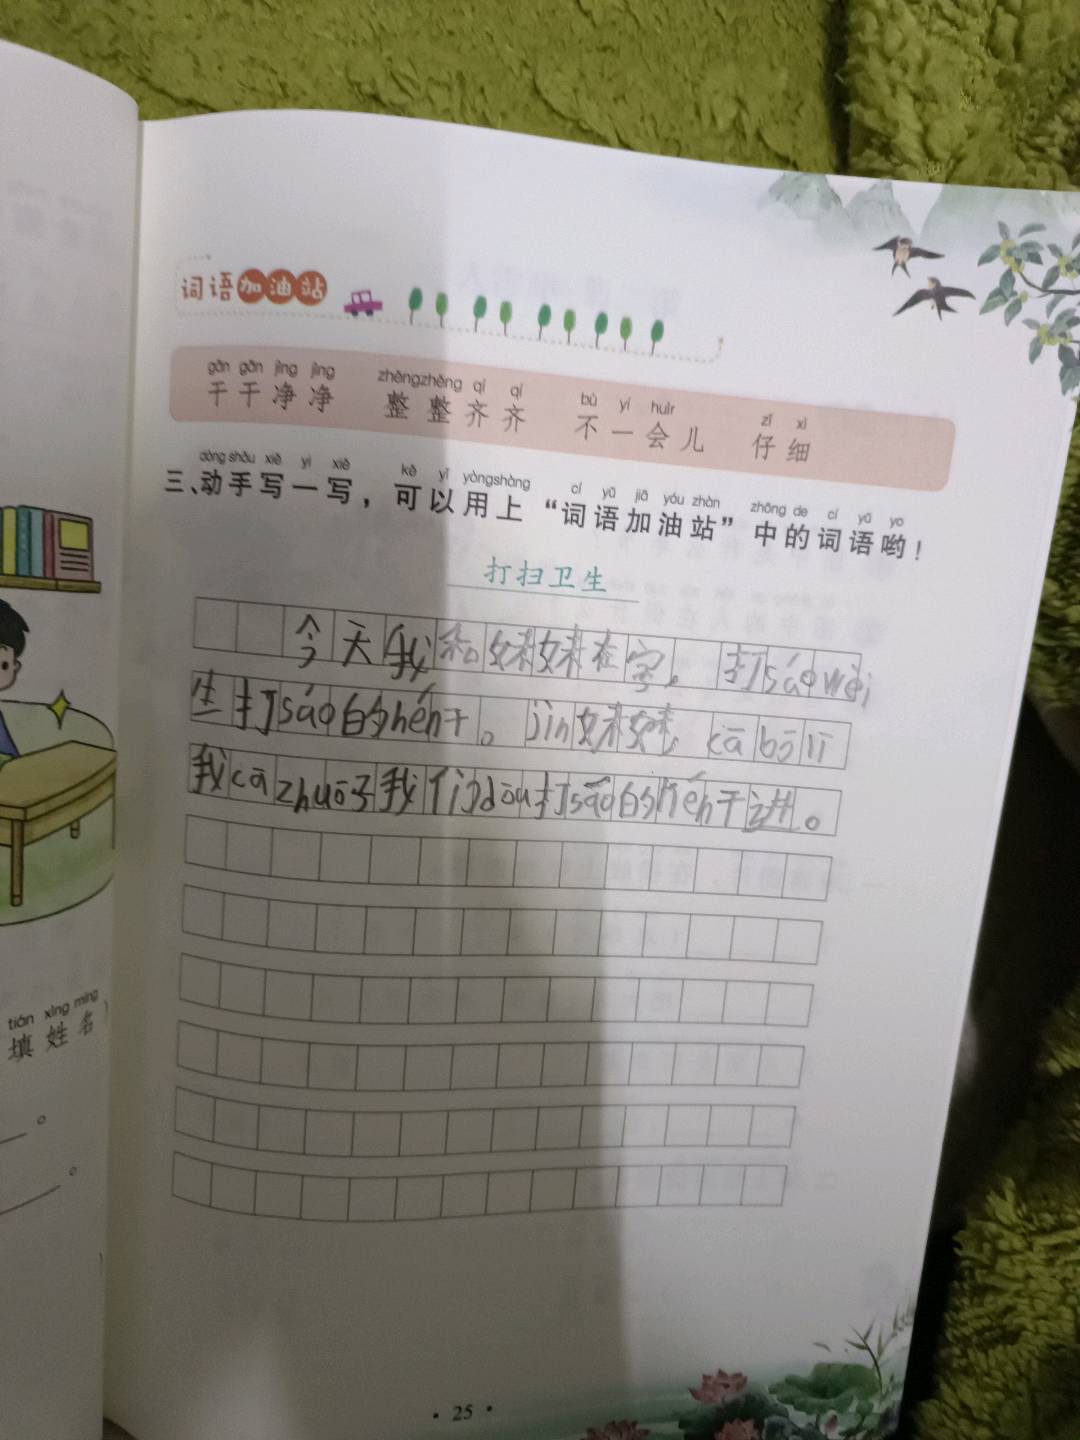 词语加油站
gān gān jìng jìng zhěngzhěng qí qí bù yí huìr zǐ xì
干干净净 整整齐齐 不一会儿 仔细
dòng shǒu xiě yi xiě kě yǐ yòngshàng cí yǔ jiā yóu zhàn zhōng de cí yǔ yo
三、动手写一写，可以用上“词语加油站”中的词语哟！
打扫卫生
今天我和妹妹在字。打sáo wèi
生打sáo的hén干。jìn妹妹 cā bō lī
我cā zhuō子我们dōu打sǎo的hén干进。
tián xìng míng
填姓名）
。
。
• 25 •